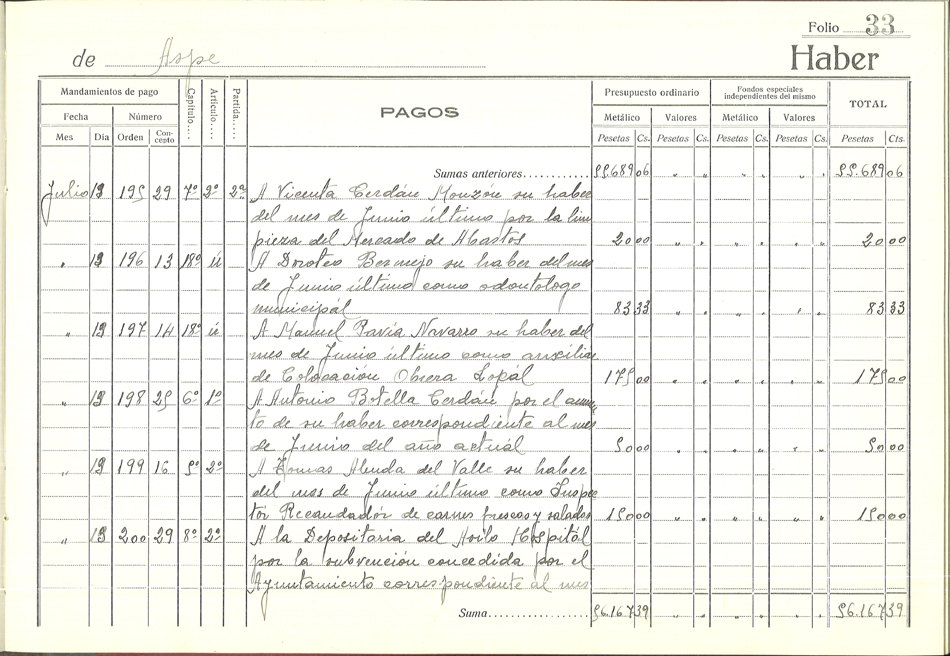 Folio 33
de Aspe Haber
Mandamientos de pago Capítulo.... Artículo.... Partida.... PAGOS Presupuesto ordinario Fondos especiales independientes del mismo TOTAL
Fecha Número Metálico Valores Metálico Valores
Mes Día Orden Concepto Pesetas Cs. Pesetas Cs. Pesetas Cs. Pesetas Cs. Pesetas Cts.
Sumas anteriores............ 55.689 06 " " " " " " 55.689 06
Julio 13 195 29 7º 2º 2ª A Vicenta Cerdán Monzón su haber
del mes de Junio último por la lim
pieza del Mercado de Abastos 20 00 " " " " " " 20 00
" 13 196 13 18º ú A Doroteo Bermejo su haber del mes
de Junio último como odontólogo
municipál 83 33 " " " " " " 83 33
" 13 197 14 18º ú A Manuel Pavía Navarro su haber del
mes de Junio último como auxiliar
de Colocación Obrera Lopál 175 00 " " " " " " 175 00
" 13 198 25 6º 1º A Antonio Botella Cerdán por el aumen
to de su haber correspondiente al mes
de Junio del año actuál 50 00 " " " " " " 50 00
" 13 199 16 5º 2º A Tomas Abuda del Valle su haber
del mes de Junio último como Inspec
tor Recaudador de carnes frescas y saladas 150 00 " " " " " " 150 00
" 13 200 29 8º 2º A la Depositaria del Asilo Hospitál
por la subvención concedida por el
Ayuntamiento correspondiente al mes
Suma................... 56.167 39 " " " " " " 56.167 39